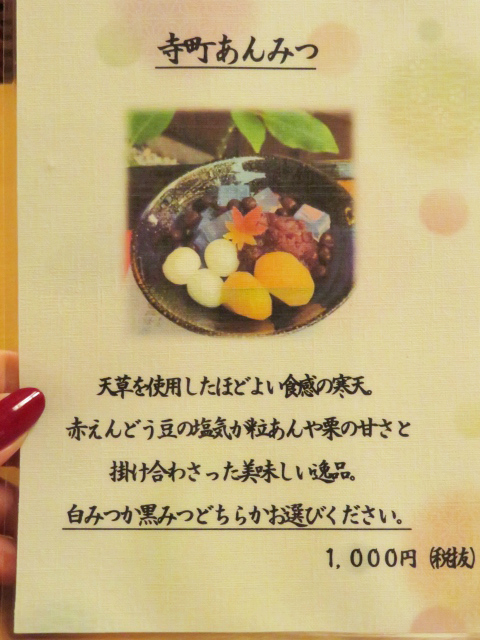 寺町あんみつ
天草を使用したほどよい食感の寒天。
赤えんどう豆の塩気が粒あんや栗の甘さと
掛け合わさった美味しい逸品。
白みつか黒みつどちらかお選びください。
1,000円（税抜）